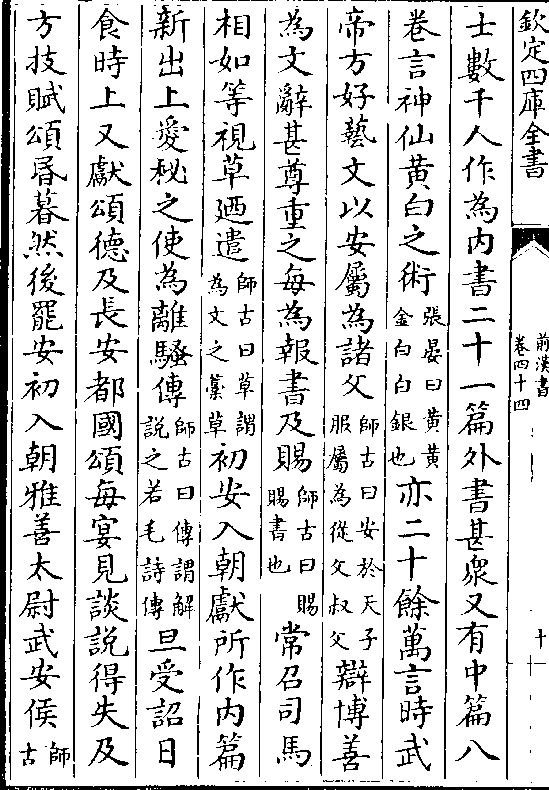 欽定四庫全書
前漢書
卷四十四
十
士數千人作為内書二十一篇外書甚衆又有中篇八
卷言神仙黄白之術張晏曰黄黄金白白銀也亦二十餘萬言時武
帝方好藝文以安屬為諸父師古曰安於天子服屬為從父叔父辯博善
為文辭甚尊重之每為報書及賜師古曰賜賜書也常召司馬
相如等視草廼遣師古曰草謂為文之藁草初安入朝獻所作内篇
新出上愛秘之使為離騷傳師古曰傳謂解說之若毛詩傳旦受詔日
食時上又獻頌德及長安都國頌每宴見談說得失及
方技賦頌昬暮然後罷安初入朝雅善太尉武安侯師古